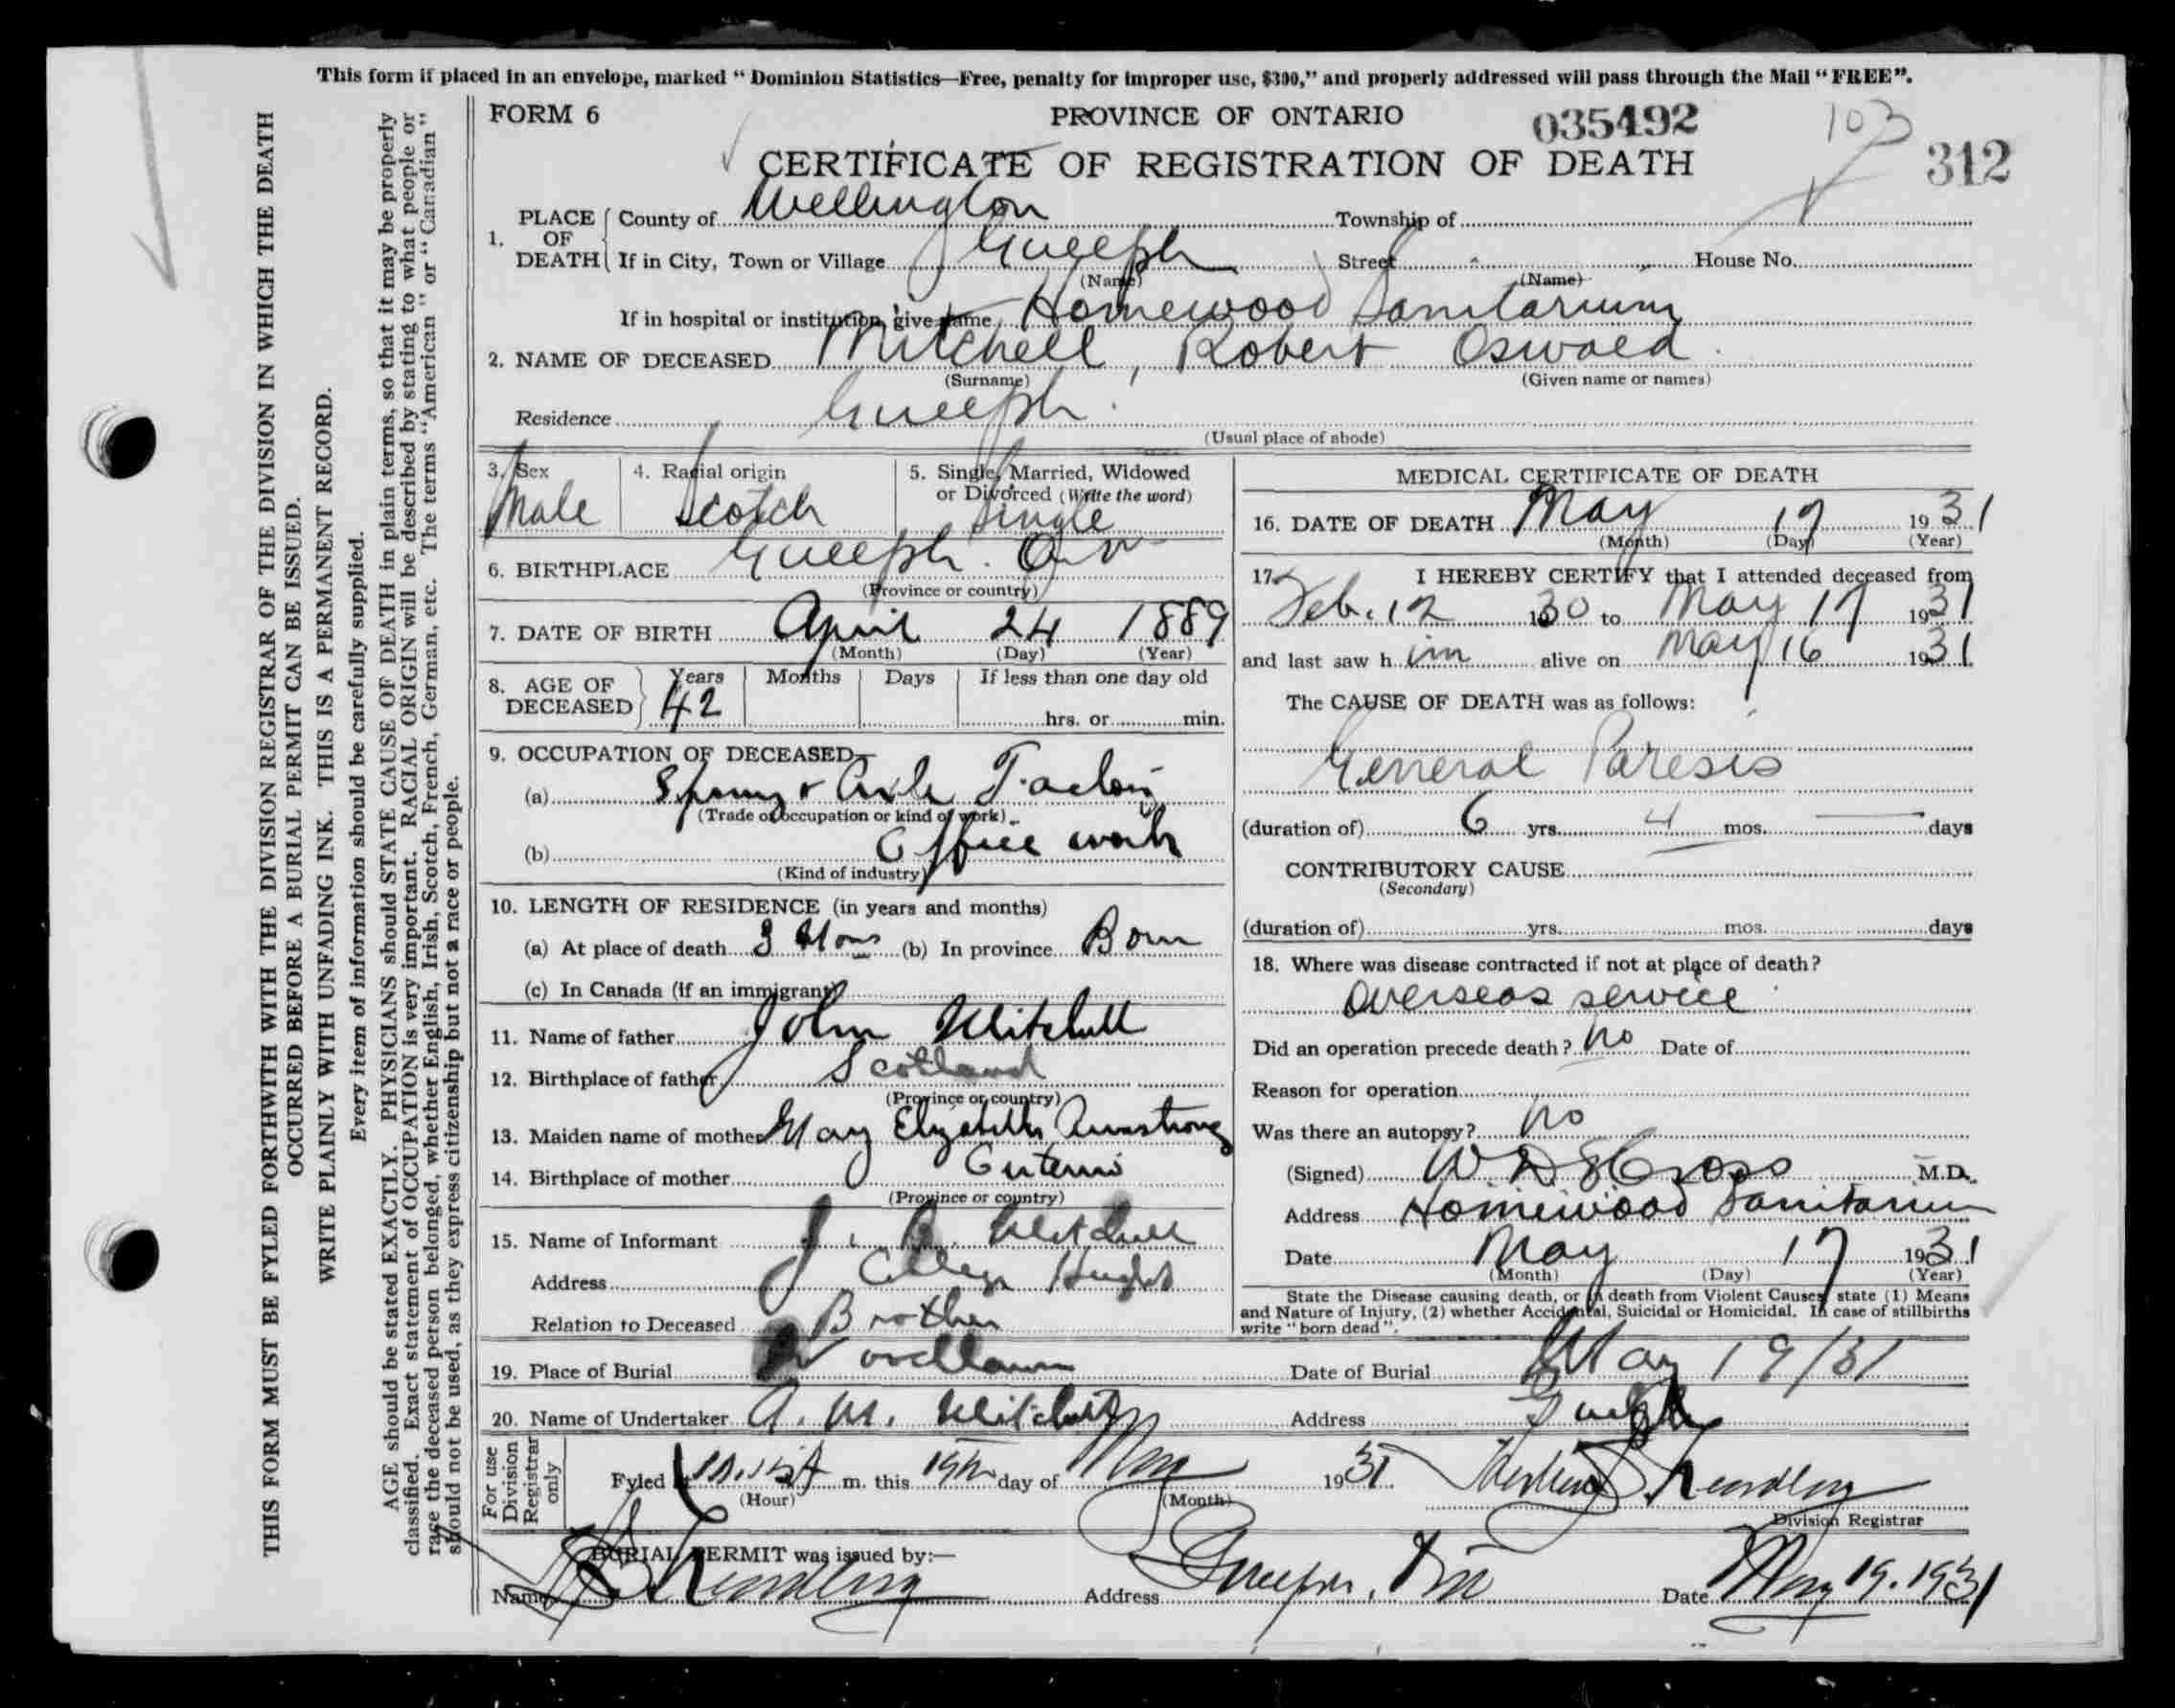 This form if placed in an envelope, marked "Dominion Statistics—Free, penalty for improper use, $300," and properly addressed will pass through the Mail "FREE".
THIS FORM MUST BE FYLED FORTHWITH WITH THE DIVISION REGISTRAR OF THE DIVISION IN WHICH THE DEATH
OCCURRED BEFORE A BURIAL PERMIT CAN BE ISSUED.
WRITE PLAINLY WITH UNFADING INK. THIS IS A PERMANENT RECORD.
Every item of information should be carefully supplied.
AGE should be stated EXACTLY. PHYSICIANS should STATE CAUSE OF DEATH in plain terms, so that it may be properly
classified. Exact statement of OCCUPATION is very important. RACIAL ORIGIN will be described by stating to what people or
race the deceased person belonged, whether English, Irish, Scotch, French, German, etc. The terms "American" or "Canadian"
should not be used, as they express citizenship but not a race or people.
FORM 6 PROVINCE OF ONTARIO 035492 103
CERTIFICATE OF REGISTRATION OF DEATH 312
1. PLACE OF DEATH County of Wellington Township of
If in City, Town or Village Guelph Street House No.
(Name) (Name)
If in hospital or institution, give name Homewood Sanitarium
2. NAME OF DECEASED Mitchell, Robert Oswald
(Surname) (Given name or names)
Residence Guelph.
(Usual place of abode)
3. Sex Male
4. Racial origin Scotch
5. Single, Married, Widowed or Divorced (Write the word) Single
6. BIRTHPLACE Guelph. Ont
(Province or country)
7. DATE OF BIRTH April 24 1889
(Month) (Day) (Year)
8. AGE OF DECEASED Years 42 Months Days If less than one day old
hrs. or min.
9. OCCUPATION OF DECEASED—
(a) Spring & Axle Factory
(Trade or occupation or kind of work)
(b) Office work
(Kind of industry)
10. LENGTH OF RESIDENCE (in years and months)
(a) At place of death 3 Mons (b) In province Born
(c) In Canada (if an immigrant)
11. Name of father John Mitchell
12. Birthplace of father Scotland
(Province or country)
13. Maiden name of mother May Elizabeth Armstrong
14. Birthplace of mother Ontario
(Province or country)
15. Name of Informant J. Mitchell
Address College Heights
Relation to Deceased Brother
MEDICAL CERTIFICATE OF DEATH
16. DATE OF DEATH May 17 1931
(Month) (Day) (Year)
17. I HEREBY CERTIFY that I attended deceased from
Feb. 12 1930 to May 17 1931
and last saw him alive on May 16 1931
The CAUSE OF DEATH was as follows:
General Paresis
(duration of) 6 yrs. 4 mos. — days
CONTRIBUTORY CAUSE
(Secondary)
(duration of) yrs. mos. days
18. Where was disease contracted if not at place of death?
Overseas service
Did an operation precede death? No Date of
Reason for operation
Was there an autopsy? No
(Signed) Cross M.D.
Address Homewood Sanitarium
Date May 17 1931
(Month) (Day) (Year)
State the Disease causing death, or in death from Violent Causes state (1) Means
and Nature of Injury, (2) whether Accidental, Suicidal or Homicidal. In case of stillbirths
write "born dead".
19. Place of Burial Woodlawn Date of Burial May 19/31
20. Name of Undertaker A. M. Mitchell Address Guelph
For use Division Registrar only
Fyled at m. this 19th day of May 1931
(Hour) (Month) Division Registrar
BURIAL PERMIT was issued by:—
Name Address Guelph, Ont Date May 19. 1931